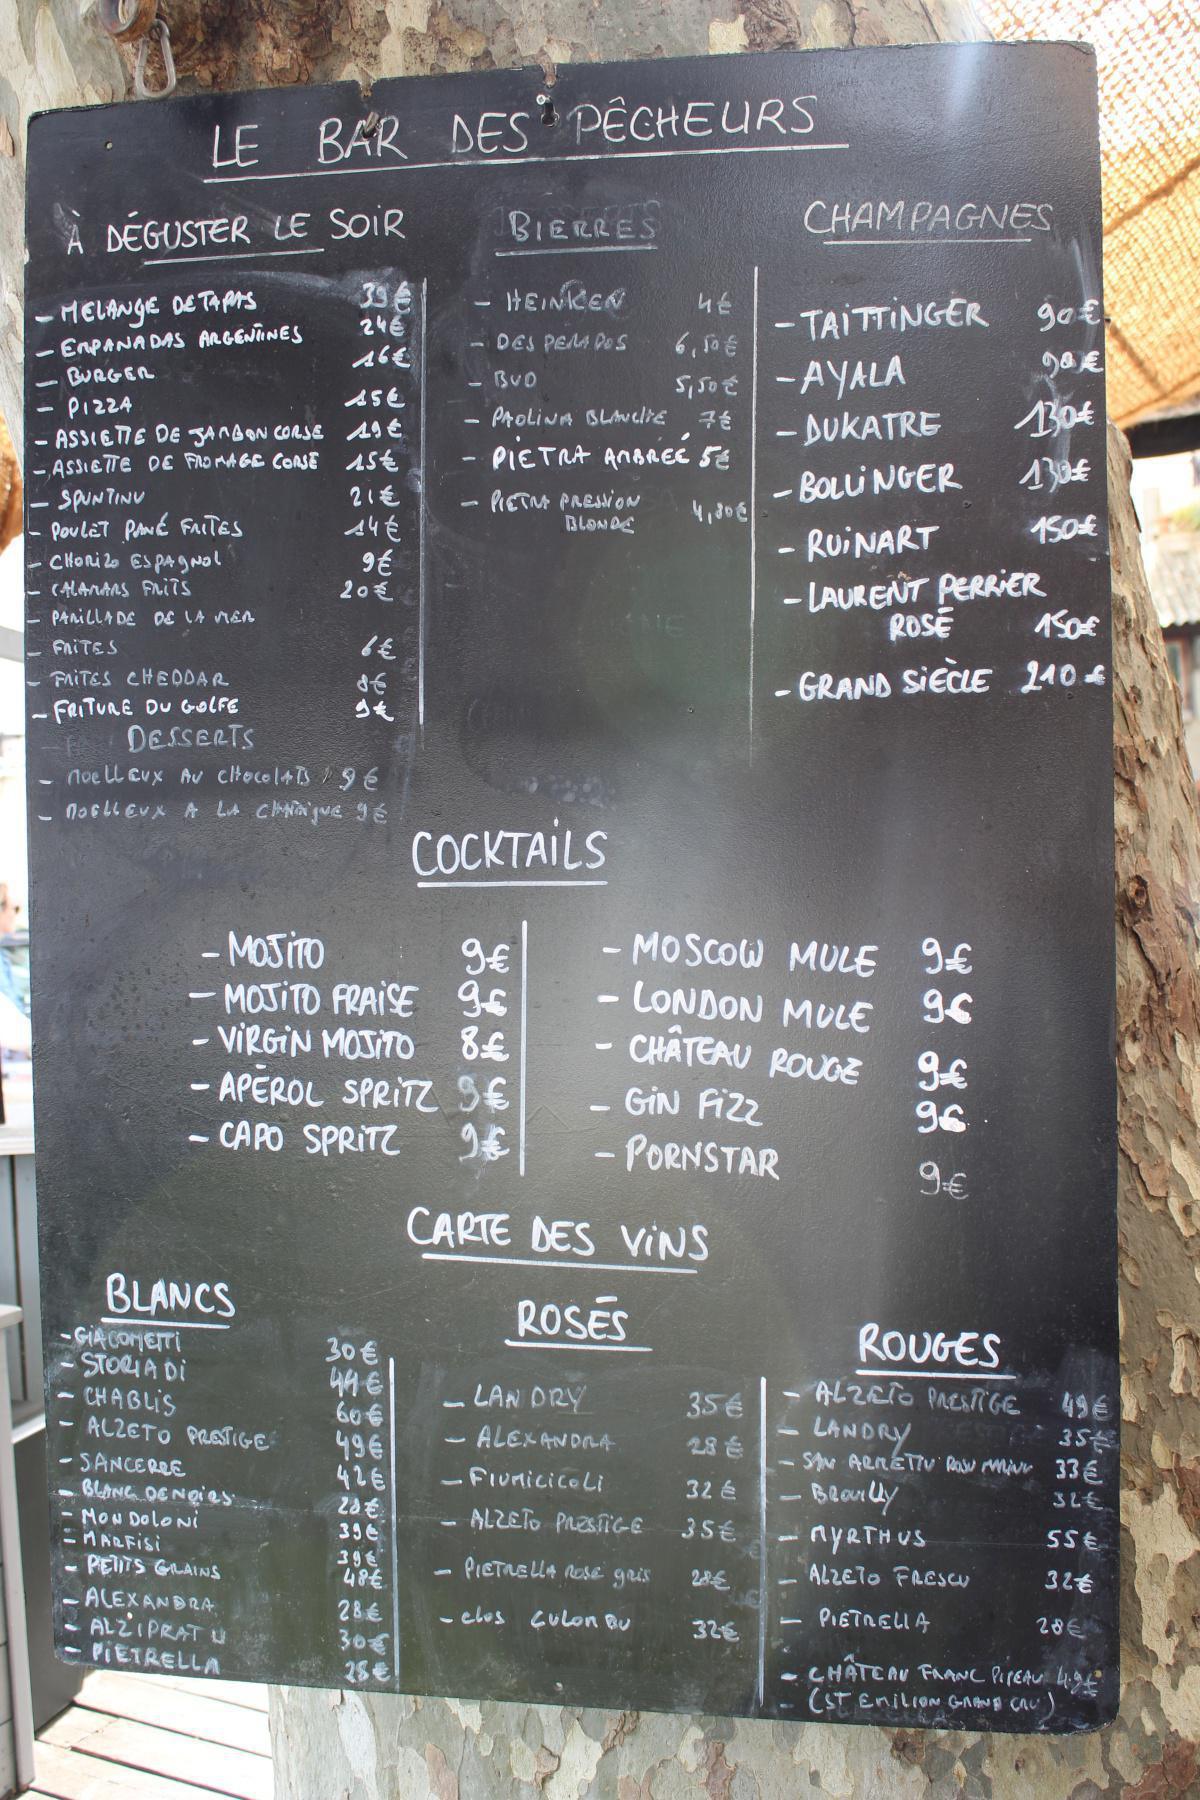 LE BAR DES PÊCHEURS
À DÉGUSTER LE SOIR
- MELANGE DE TAPAS 39€
- EMPANADAS ARGENTINES 24€
- BURGER 16€
- PIZZA 15€
- ASSIETTE DE JAMBON CORSE 19€
- ASSIETTE DE FROMAGE CORSE 15€
- SPUNTINU 21€
- POULET PANÉ FRITES 14€
- CHORIZO ESPAGNOL 9€
- CALAMARS FRITS 20€
- PARILLADE DE LA MER
- FRITES 6€
- FRITES CHEDDAR 8€
- FRITURE DU GOLFE 9€
DESSERTS
- MOELLEUX AU CHOCOLAT 9€
- MOELLEUX A LA 9€
BIERRES
- HEINKEN 4€
- DESPERADOS 6,50€
- BUD 5,50€
- PAOLINA BLANCHE 7€
- PIETRA AMBRÉE 5€
- PIETRA PRESSION
BLONDE 4,80€
CHAMPAGNES
- TAITTINGER 90€
- AYALA 90€
- DUKATRE 130€
- BOLLINGER 130€
- RUINART 150€
- LAURENT PERRIER
ROSÉ 150€
- GRAND SIÈCLE 210€
COCKTAILS
- MOJITO 9€
- MOJITO FRAISE 9€
- VIRGIN MOJITO 8€
- APÉROL SPRITZ 9€
- CAPO SPRITZ 9€
- MOSCOW MULE 9€
- LONDON MULE 9€
- CHÂTEAU ROUGE 9€
- GIN FIZZ 9€
- PORNSTAR 9€
CARTE DES VINS
BLANCS
- GIACOMETTI 30€
- STORIA DI 49€
- CHABLIS 60€
- ALZETO PRESTIGE 49€
- SANCERRE 42€
- BLANC DE NOIRS 28€
- MONDOLONI 39€
- MARFISI 39€
- PETITS GRAINS 48€
- ALEXANDRA 28€
- ALZIPRATU 30€
- PIETRELLA 28€
ROSÉS
- LANDRY 35€
- ALEXANDRA 28€
- FIUMICICOLI 32€
- ALZETO PRESTIGE 35€
- PIETRELLA ROSE GRIS 28€
- CLOS CULOMBU 32€
ROUGES
- ALZETO PRESTIGE 49€
- LANDRY 35€
- SAN ARMETTU ROSU MARINU 33€
- BROUILLY 32€
- MYRTHUS 55€
- ALZETO FRESCU 32€
- PIETRELLA 28€
- CHÂTEAU FRANC PIPEAU 49€
- (ST EMILION GRAND CRU)